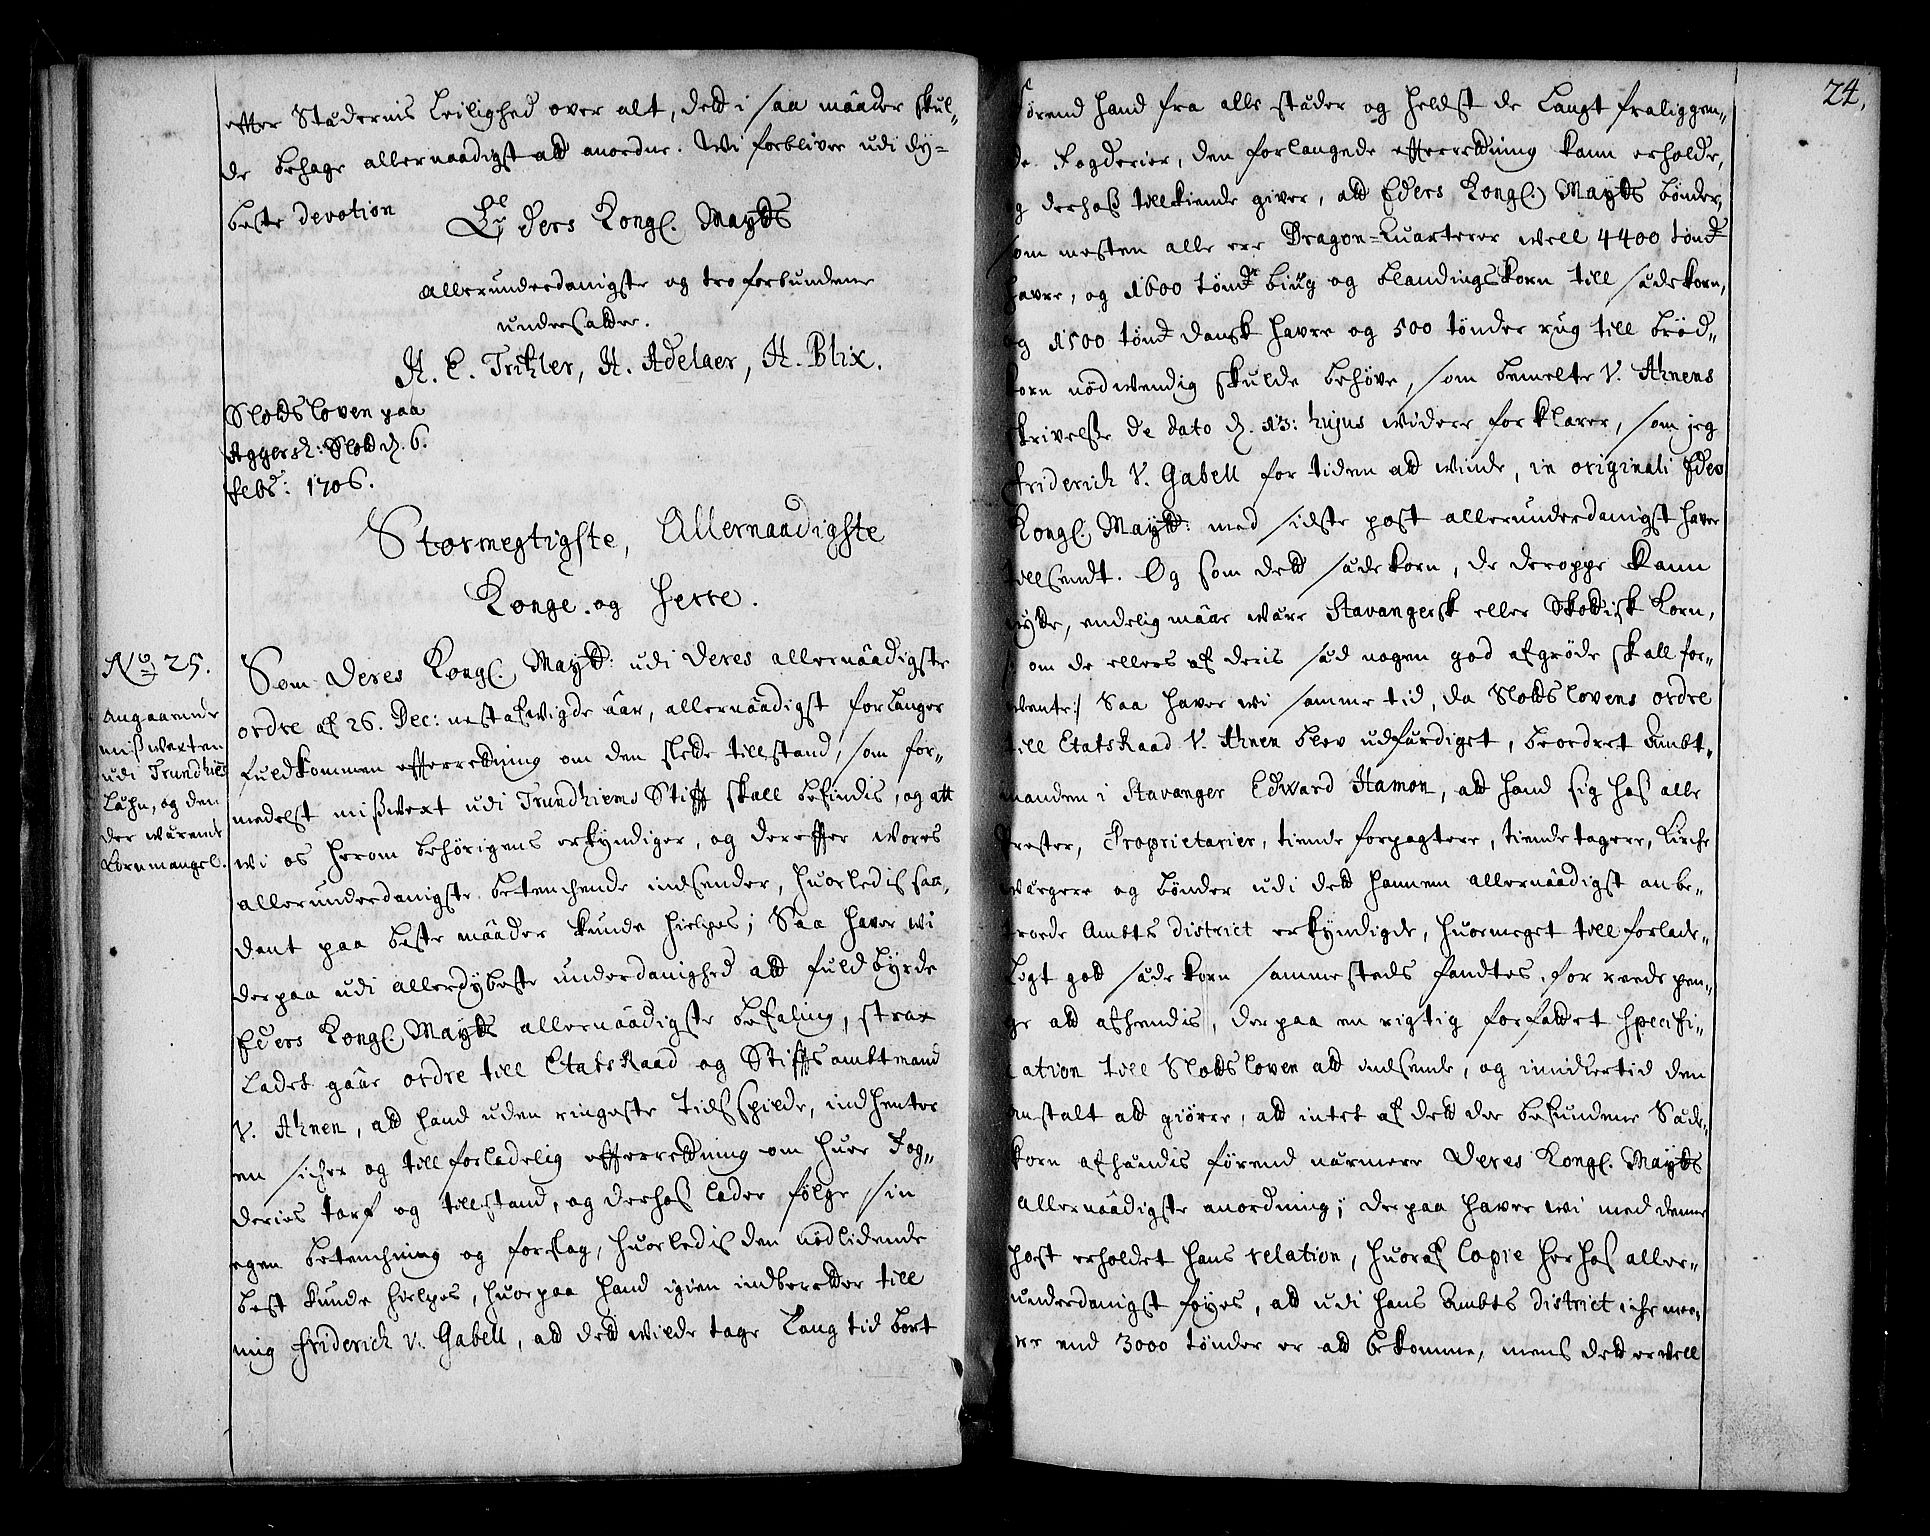 efter Stædernis Leilighed over alt, dett i saa måader skul-
de behage allernaadigst att anordne. Wi forblive udi dy-
beste devotion
Eders Kongl. Maytts
allerunderdanigste og troforbundene
undersatter.
H. C. Tritzler, H. Adelaer, H. Blix.
Slottsloven paa
Aggersh: Slott d. 6.
Febr: 1706.
Stormegtigste, Allernaadigste
Konge og Herre.
No 25.
Angaaende
misswexten
udi Trundhiems
Læhn, og den
der wærende
Kornmangel.
Som Deres Kongl. Maytt: udi Deres allernåadigste
ordre af 26. Dec: nestafwigde åar, allernåadigst forlanger
fuldkommen efterretning om den slette tillstand, som for-
medelst missvext udi Trundhiems Stifft skall befindis, og att
wi os herom behörigens erkyndiger, og derefter wores
allerunderdanigste betenchende indsender, huorledis saa-
dant paa beste måader kunde hielpes; Saa haver wi
derpaa udi allerdybeste underdanighed att fuldbyrde
Eders Kongl. Maytts allernåadigste befaling, strax
ladet gåae ordre till Etats Raad og Stifftsambtmand
V. Ahnen, att hand uden ringeste Tidsspilde, indhenter
en sicher og tillforladelig efterretning om huer Fog-
deries tarf og tillstand, og derhos lader følge sin
egen betenchning og forslag, huorledis den nødlidende
best kunde hielpes, huorpaa hand igien indberetter till
mig Friderich v. Gabell, att dett wilde tage Lang tid bort
24.
førend hand fra alle stæder og heldst de Langt fraliggen-
de Fogderier, den forlangede efterretning kann erholde,
og derhos tillkiende giver, att Eders Kongl. Maytts bönder,
som mesten alle ere Dragon-Quarterer well 4400 tönd
havre, og 1600 tönd biug og blandingskorn till sædekorn,
og 1500 tönd dansk havre og 500 tönder rug till bröd-
korn nödwendig skulde behöve, som bemelte V. Ahnens
skrivelse de dato d. 13: hujus widere forklarer, som jeg
Friderich V. Gabell for tiden att winde, in originali Eders
Kongl. Maytt: med sidste post allerunderdanigst haver
tillsendt. Og som dett sædekorn, de deroppe kann
nytte, endelig måae være Stavangersk eller Skottisk Korn,
som de ellers af deris sæd nogen god afgröde skall for-
vente:/ Saa haver wi samme tid, da Slottslovens ordre
till Etats Raad V. Ahnen blev udfærdiget, beordret Ambt-
manden i Stavanger Edward Hamon, att hand sig hos alle
Prester, Proprietarier, tiende forpagtere, tiendetagere, Kirche
wærgere og bönder udi dett hannem allernåadigst anbe-
troede Ambts district erkyndigde, huormeget tillforlade-
ligt gott sædekorn sammesteds fandtes, for reede pen-
ge att afhendis, derpaa en rigtig forfattet specifi-
cation till Slottsloven att indsende, og imidlertid den
anstalt att giörre, att intet af dett der befundene Sæde-
korn afhændis förend nærmere Deres Kongl. Maytts
allernåadigste anordning; derpaa haver wi med denne
post erholdet hans relation, huoraf Copie herhos aller-
underdanigst föyes, att udi hans Ambts district iche mee-
re end 3000 tönder er att bekomme, mens dett er well